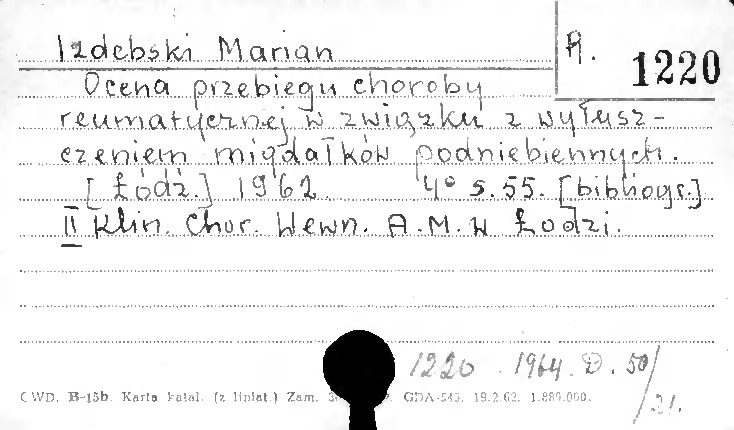 Izdebski Marian
A. 1220
Ocena przebiegu choroby
reumatycznej w związku z wyłusz-
czeniem migdałków podniebiennych.
[Łódź.] 1962 4° s. 55. [bibliogr.]
II Klin. Chor. Wewn. A.M. w Łodzi.
1220 1964. D. 50/
21.
CWD. B-15b. Karta katal. (z liniat.) Zam. GDA-545. 19.2.62. 1.880.000.